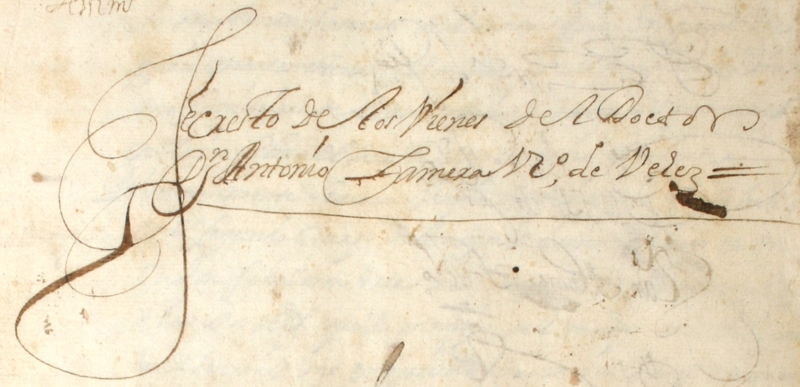 Secresto de los Vienes del Doctor
Dn Antonio Zamora Vzo. de Velez =